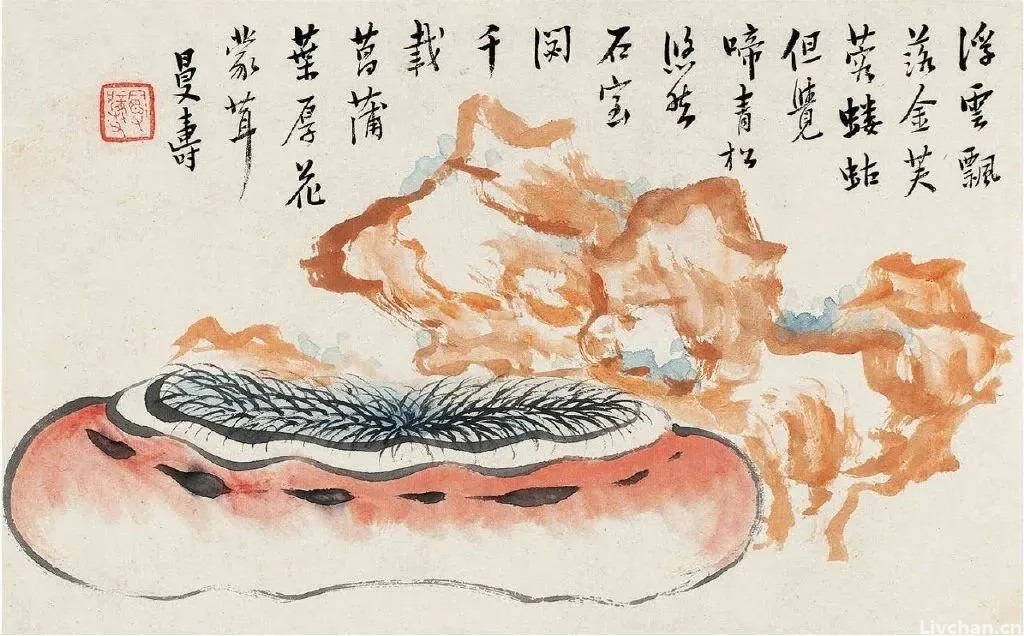 浮雲飄
落金芙
蓉螻蛄
但覺
啼青松
悠然
石室
閟
千
載
菖蒲
葉厚花
蒙茸
曼壽
Livchan.cn